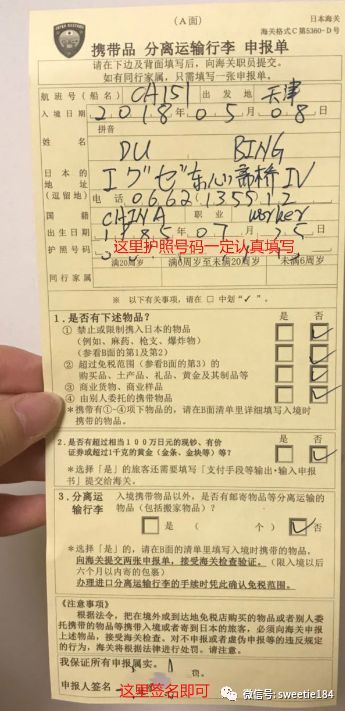 （A面）
日本海关
海关格式C第5360-D号
携带品 分离运输行李 申报单
请在下边及背面填写后，向海关职员提交。
如有同行家属，只需填写一张申报单。
航班号（船名） CA151 出发地 天津
入境日期 2018年05月08日
拼音
姓名
DU BING
日本的地址（逗留地） エグゼ东心斋桥IV
电话 0662135512
国籍 CHINA 职业 worker
出生日期 1985年07月25日
这里护照号码一定认真填写
护照号码
同行家属 满20周岁 满6周岁至未满20周岁 未满6周岁
※ 以下有关事项，请在 □ 中划“✓”。
1.是否有下述物品？ 是 否
① 禁止或限制携入日本的物品 ✓
（例如、麻药、枪支、爆炸物）
（参看B面的第1及第2）
② 超过免税范围（参看B面的第3）的 ✓
购买品、土产品、礼品、黄金及其制品等
③ 商业货物、商业样品 ✓
④ 由别人委托的携带物品 ✓
＊携带有①-④项下物品的，请在B面清单里详细填写入境时
携带的物品。
2.是否有超过相当100万日元的现钞、有价 是 否
证券或超过1千克的黄金（金条、金块等）等？ ✓
＊选择「是」的旅客还需要填写「支付手段等输出・输入申报
书」提交给海关。
3.分离运输行李 入境携带物品以外，是否有邮寄物品等分离运输的
物品（包括搬家物品）？
□ 是 （ 个） ✓ 否
＊选择「是」的，请在B面的清单里填写入境时携带的物品。
向海关提交两张申报单，接受海关检查验证。（限入境以后
六个月以内寄的包裹）
办理进口分离运输行李的手续时凭此确认免税范围。
《注意事项》
根据法令，把在境外或到达地免税店购买的物品或者别人委
托携带的物品等携带入境或者寄到日本的旅客，必须向海关申报
上述物品，接受海关检查。对不申报或者虚伪申报等的违反规定
的行为，海关将根据法律进行处罚。请注意。
我保证所有申报属实。
申报人签名
这里签名即可
微信号: sweetie184